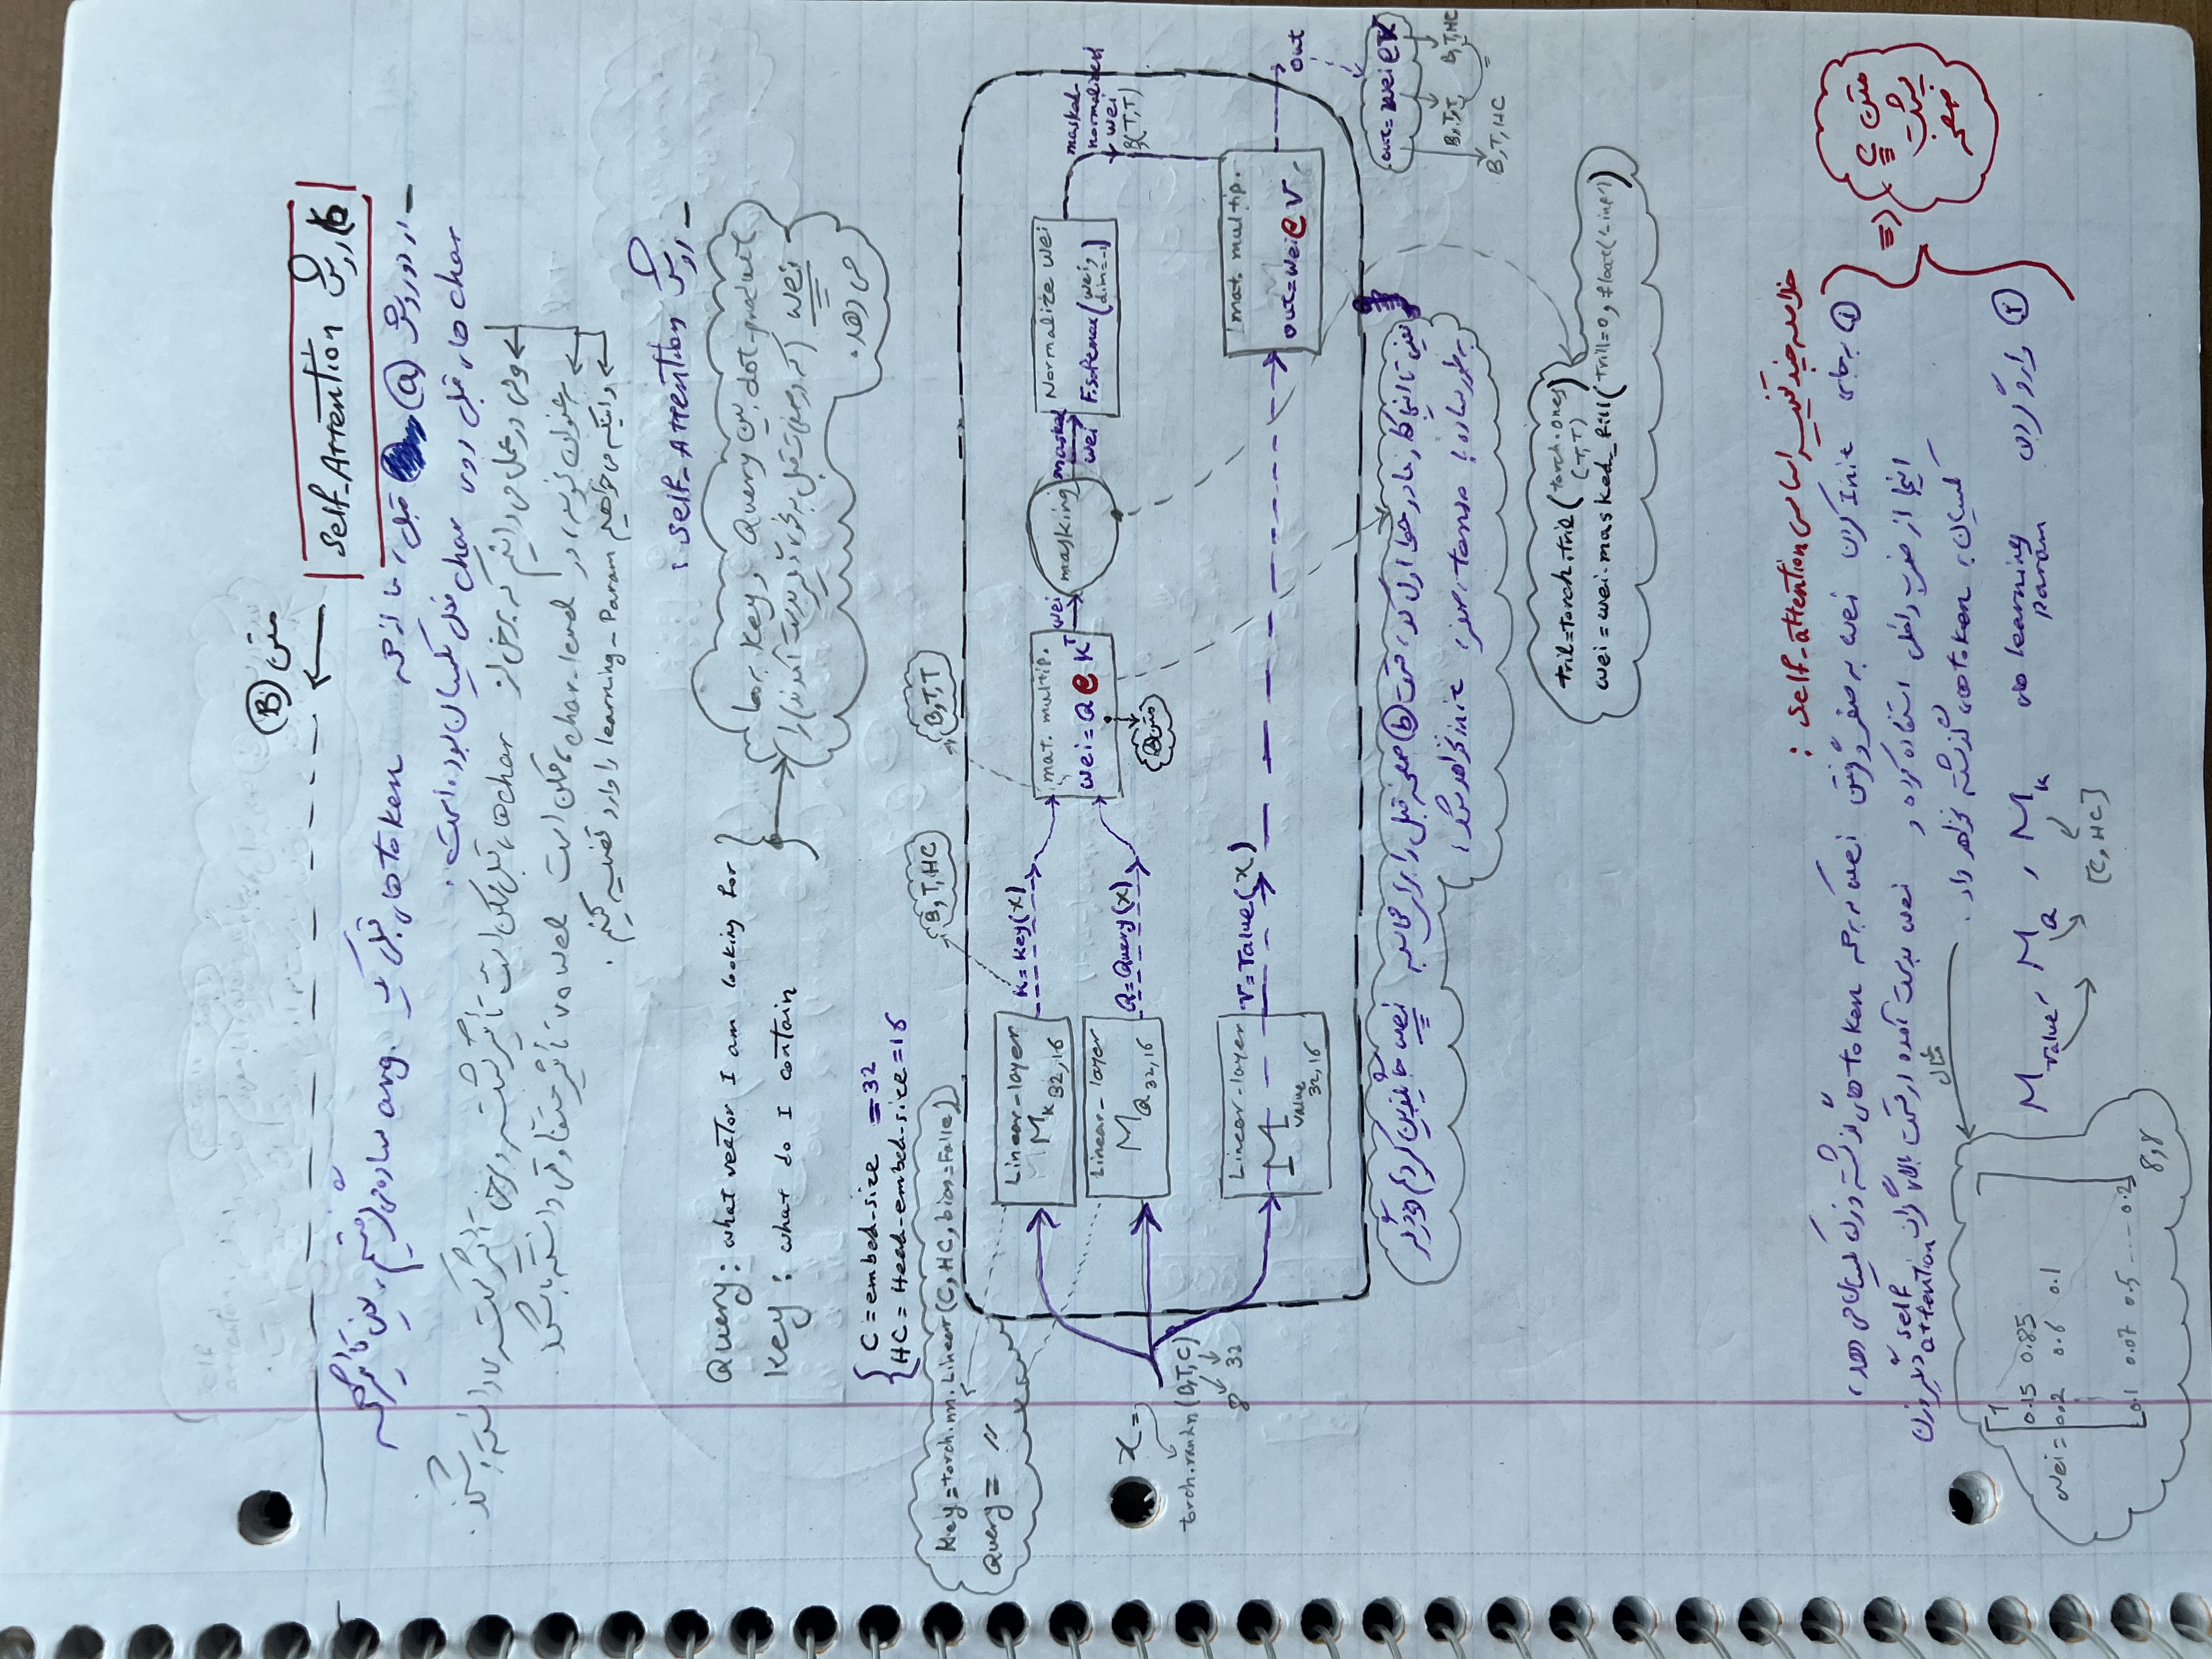 متن (B)
b) روش Self-Attention
- در دو روش (a) قبل، ما از همه token های قبلی یک avg. ساده می گرفتیم، یعنی تأثیر همه
char های قبلی روی char فعلی یکسان بوده است.
ولی در عمل می دانیم که برخی از char های قبلی ممکن است تأثیر بیشتر و برخی تأثیر کمتری داشته باشند.
به عنوان نمونه، در char-level، ممکن است vowel تأثیر متفاوتی داشته باشد.
و اینکه می خواهیم learning-Param را وارد قضیه کنیم.
- روش Self-Attention :
Query: what vector I am looking for
Key: what do I contain
dot-product بین Query و Key به ما
wei (که در صفحات قبل به نحو دیگر بدست آمدند) را
می دهد.
C = embed-size = 32
HC = Head-embed-size = 16
Key = torch.nn.Linear(C, HC, bias=False)
Query = "
B,T,HC
B,T,T
Linear-layer
M K 32,16
K = Key(x)
Linear-layer
M Q 32,16
Q = Query(x)
mat. multip.
wei = Q @ K^T
متن A
wei
masking
masked wei
Normalize wei
F.softmax(wei, dim=-1)
masked-normalized wei
B(T,T)
x =
torch.randn(B,T,C)
8 32
Linear-layer
M value 32,16
V = Value(x)
mat. multip.
out = wei @ V
out
out = wei @ V
B,T,T B,T,HC
B,T,HC
یعنی تا اینجا کار ما در خط اول کد، قسمت (b) صفحه قبل را برای محاسبه wei جایگزین کردیم و دیگر
به طور ساده با tensor صفر، init نخواهد شد،
tril = torch.tril(torch.ones(T,T))
wei = wei.masked_fill(trill=0, float('-inf'))
خلاصه چند تغییر اساسی Self-attention :
① به جای Init کردن wei به صفر و گرفتن wei که به همه token های گذشته وزن یکسان می دهد،
اینجا از ضرب داخلی استفاده کرده و wei بدست آمده از قسمت بالا self attention دیگر وزن
یکسان به token های گذشته نخواهد داد.
مثال
② وارد کردن learning param های M K , M Q , M value
[C, HC]
متن C پشت صفحه
wei =
1
0.15 0.85
0.2 0.6 0.1
0.1 0.07 0.5 ---- 0.2
8,8